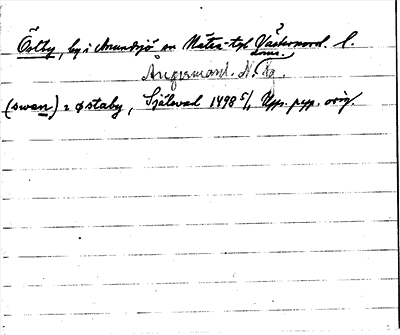 Östby, by i Anundsjö sn Nätra-tgl Västernorrl. l.
Ångermanl. N.
(swan) i Østaby, Själevad 1498 5/1 Upps. ppp. orig.